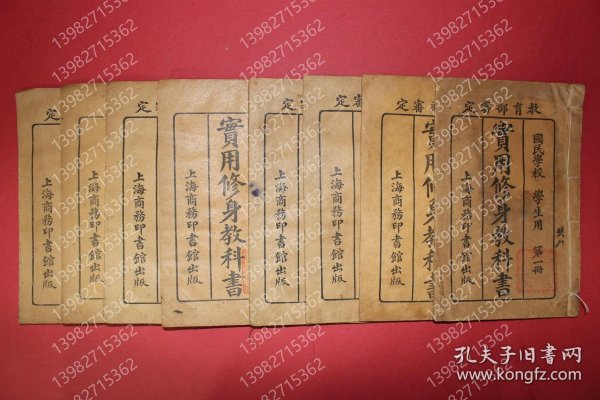 教育部審定
國民學校 學生用 第一冊
共八
實用修身教科書
上海商務印書館出版
審定
實用修身教科書
上海商務印書館出版
審定
上海商務印書館出版
定
上海商務印書館出版
實用修身教科書
上海商務印書館出版
定
上海商務印書館出版
上海商務印書館出版
上海商務印書館出版
13982715362
孔夫子旧書网
www.kongfz.com